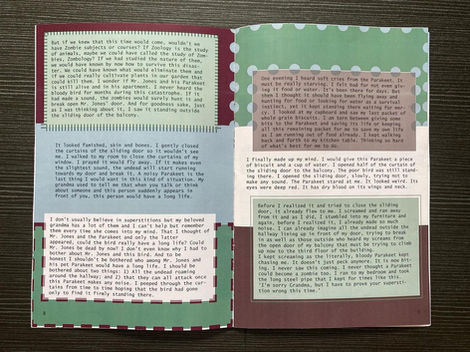 But if we knew that this time would come, wouldn't we
have Zombie subjects or courses? If Zoology is the study
of animals, maybe we could have called the study of Zom-
bies, Zombology? If we had studied the nature of them,
we would have known by now how to survive this disas-
ter. We could have known what would eliminate them and
if we could really cultivate plants in our garden that
could kill them. I wonder if Mr. Jones and his Parakeet
is still alive and in his apartment. I never heard the
bloody bird for months during this catastrophe. If it
had made a sound, the zombies would surely hunt it and
break open Mr. Jones' door. And for goodness sake, just
as I was thinking about it, I saw it standing outside
the sliding door of the balcony.
It looked famished, skin and bones. I gently closed
the curtains of the sliding door so it wouldn't see
me. I walked to my room to close the curtains of my
window. I prayed it would fly away. If it makes even
the slightest sound, the undead will start marching
towards my door and break it. A noisy Parakeet is the
last thing I would want in this kind of situation. My
grandma used to tell me that when you talk or think
about someone and this person suddenly appears in
front of you, this person would have a long life.
I don't usually believe in superstitions but my beloved
grandma has a lot of them and I can't help but remember
them every time she comes into my mind. That I thought of
Mr. Jones and the Parakeet and only the latter
appeared, could really have a long life? Could
Mr. Jones be dead by now? I don't even know why I had to
bother about Mr. Jones and this bird. And to be
honest I shouldn't be bothered who among Mr. Jones and
his pet Parakeet would have a long life. I should be
bothered about two things: 1) All the undead roaming
around the hallway; and 2) that they can all attack once
this Parakeet makes any noise. I peeped through the cur-
tains from time to time hoping that the bird had gone
only to find it firmly standing there.
8
One evening I heard soft cries from the Parakeet. It
must be really starving. I felt bad for not even giv-
ing it food or water. It's been there for days. But
then I thought it should have been flying away and
hunting for food or looking for water as a survival
instinct, yet it kept standing there waiting for mer-
cy. I looked at my cupboard and saw my last packet of
whole grain biscuits. I am torn between giving some
to the Parakeet and saving its life or keeping
all this remaining packet for me to save my own life
as I am running out of food already. I kept walking
back and forth to my kitchen table. Thinking so hard
of what's best for me to do.
I finally made up my mind. I would give this Parakeet a piece
of biscuit and a cup of water. I opened half of the curtain
of the sliding door to the balcony. The poor bird was still stand-
ing there. I opened the sliding door, slowly, trying not to
make any sound. The Parakeet stared at me. It looked weird. Its
eyes were deep red. It has dry blood on its wings and neck.
Before I realized it and tried to close the sliding
door, it already flew to me. I screamed and ran away
from it and as I did, I stumbled into my furniture and
again, before I realized it, I already made so much
noise. I can already imagine all the undead outside the
hallway lining up in front of my door, trying to break
in as well as those outside who heard my screams from
the open door of my balcony that must be trying to climb
up now to the third floor of the building.
I kept screaming as the literally, bloody Parakeet kept
chasing me. It doesn't just peck anymore. It is now bit-
ing. I never saw this coming. I never thought a Parakeet
could become a zombie too. I ran to my bedroom and took
the long steel pipe that I kept for times like this.
'I'm sorry Grandma, but I have to prove your supersti-
tion wrong this time.'